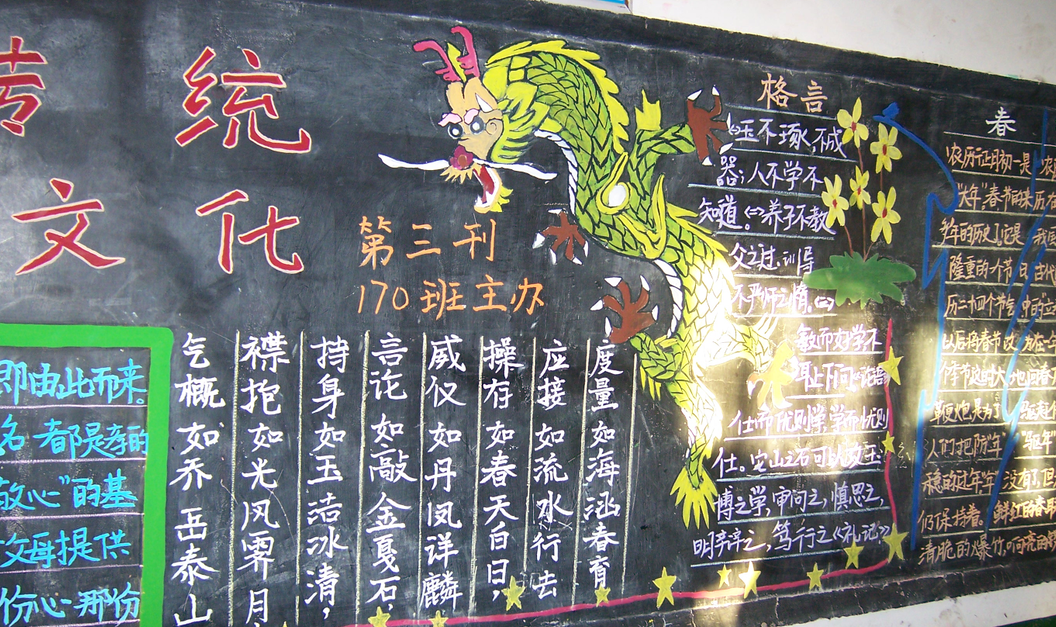 传统
文化
第三刊
170班主办
即由此而来。
名 都是孝的
敬心"的基
父母提供
份心 那份
度量如海涵春育,
应接如流水行去
操存如春天白日,
威仪如丹凤详麟
言论如敲金戛石,
持身如玉洁冰清,
襟抱如光风霁月
气概如乔岳泰山
格言
玉不琢,不成
器;人不学不
知道。养子不教
父之过,训导
不严师之惰。
敏而好学不
耻下问《论语》
仕而优则学,学而优则
仕。它山之石可以攻玉。
博之学,审问之,慎思之
明辨之,笃行之《礼记》
春
农历正月初一是
"大年"春节的来历
年的历史,它是
隆重的一个节日
历二十四个节气中的"立
以后将春节改
作节
鞭炮是为了
人们把防"年"
没有了,但
们保持着。鲜红的春联
清脆的爆竹,